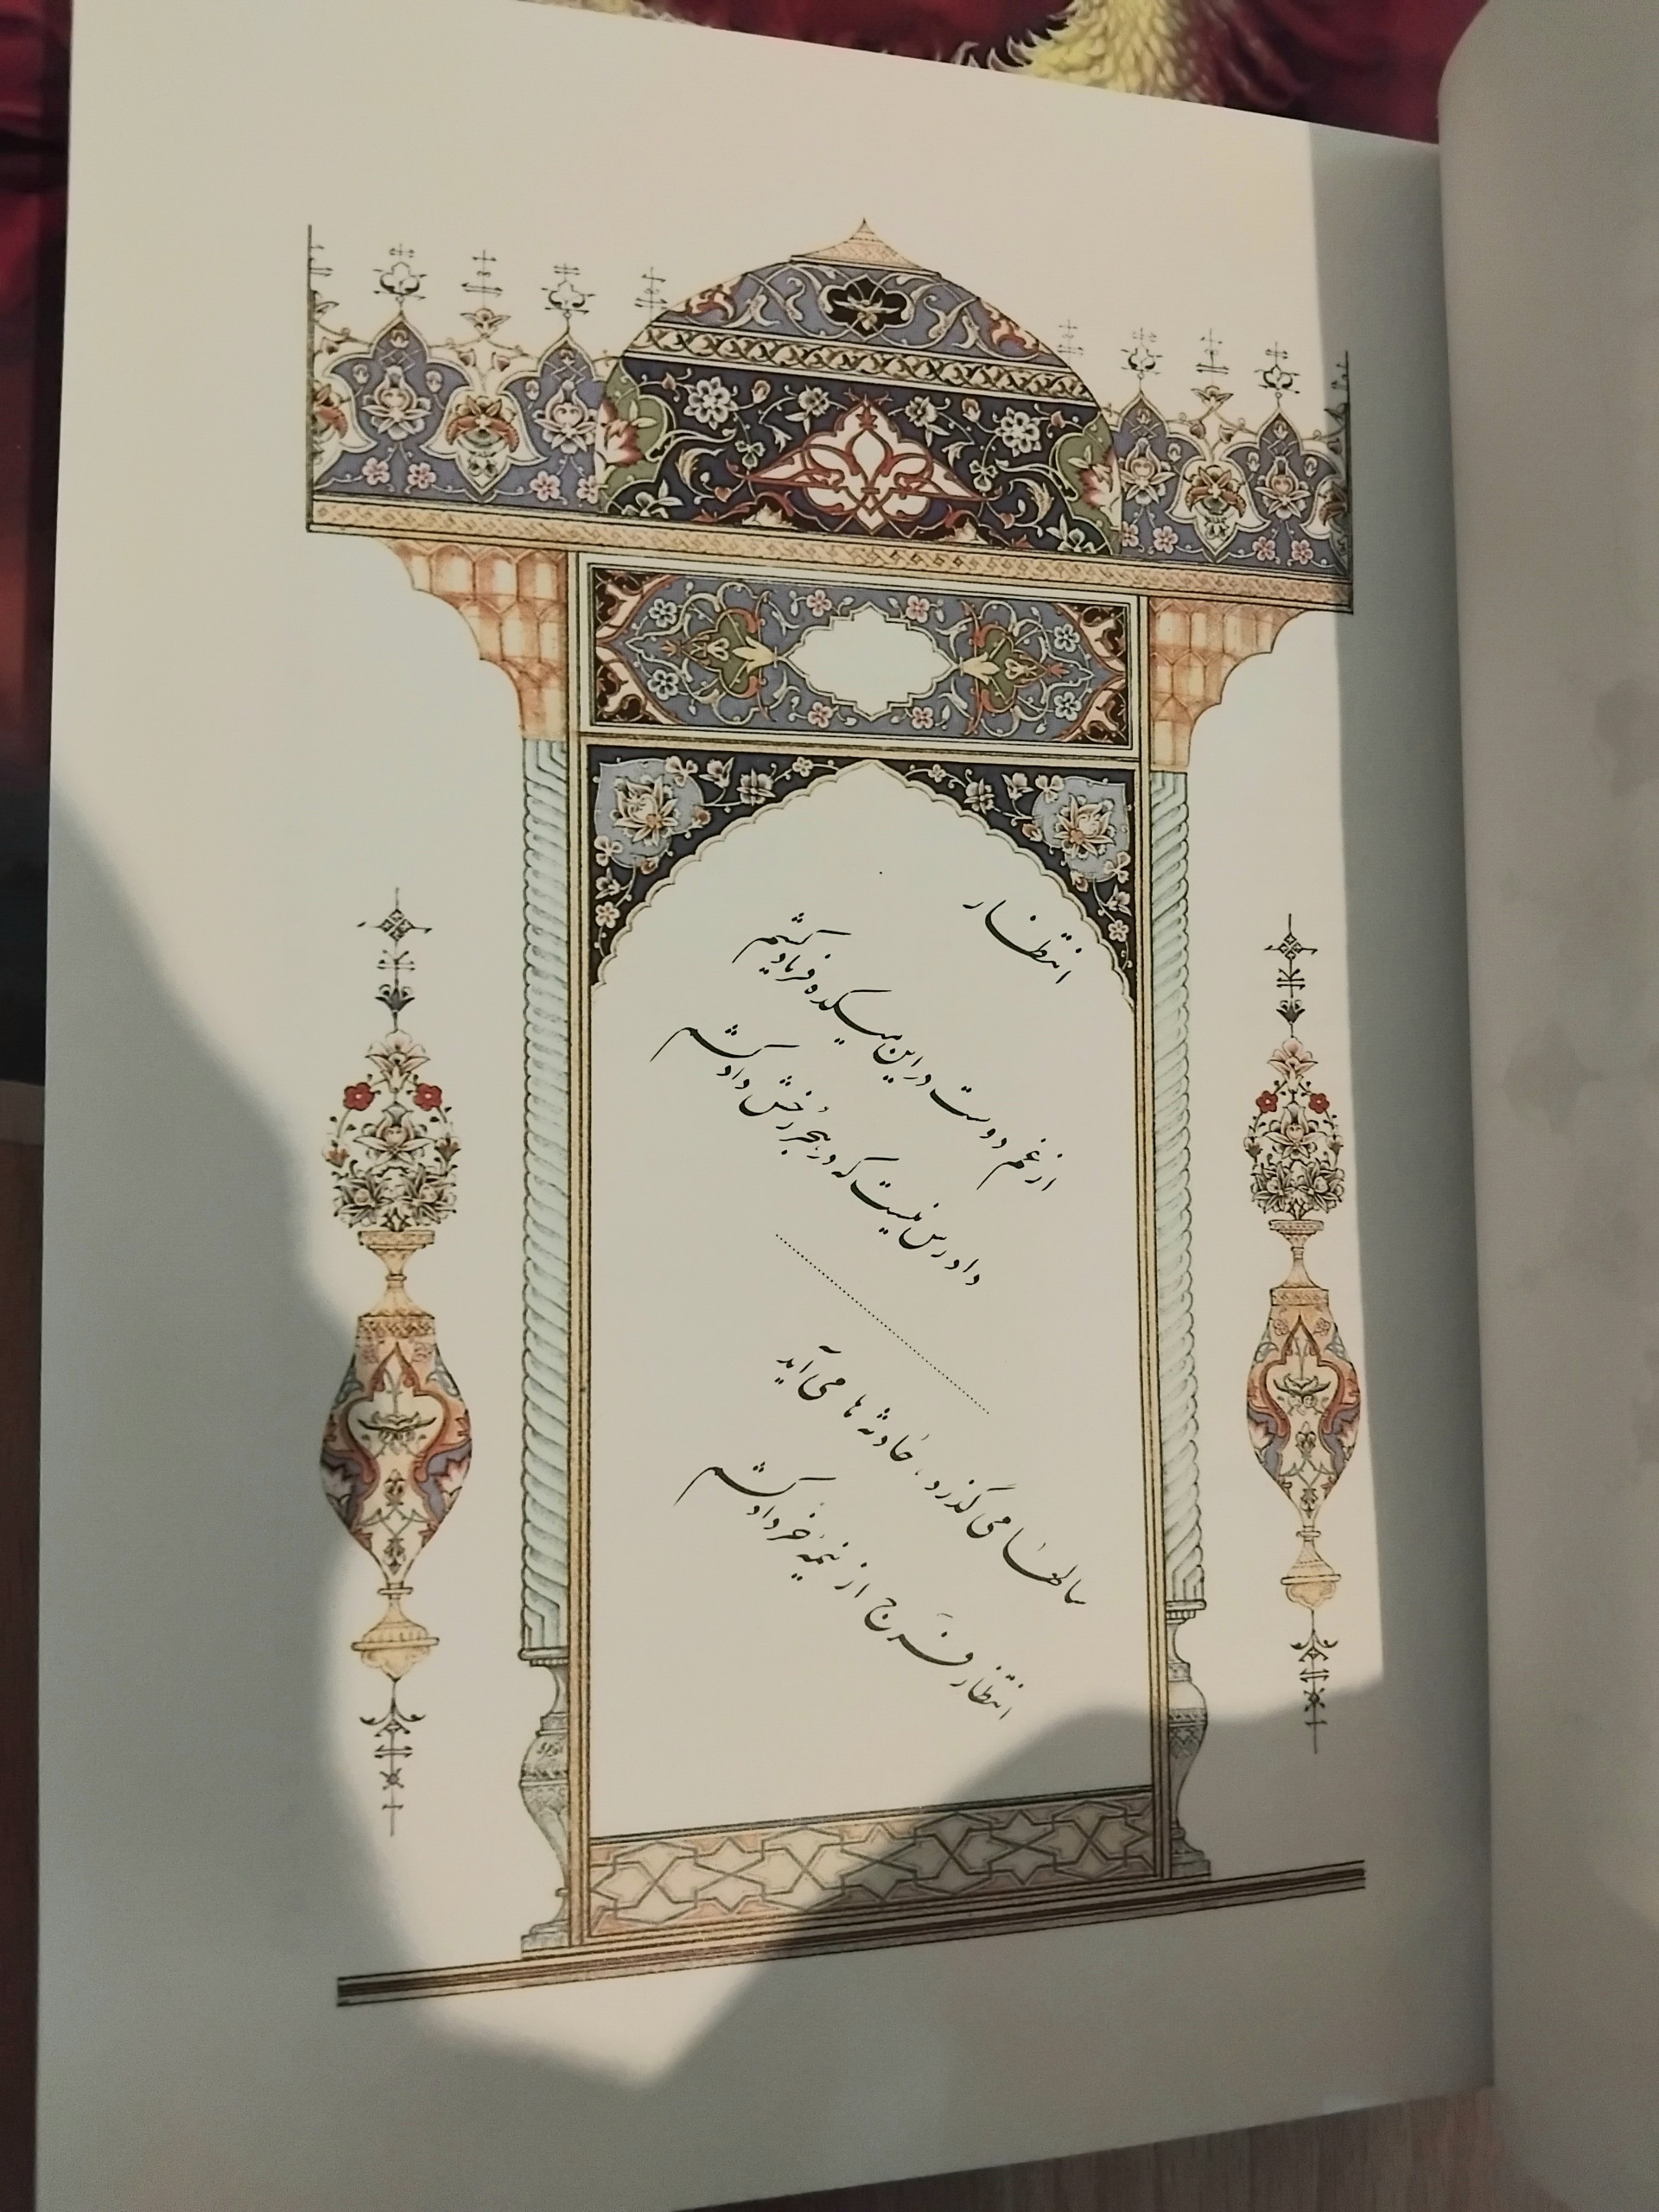 انتظار
از غم دوست در این میکده فریاد کشم
دادرس نیست که در هجر رخش داد کشم
سالها می گذرد، حادثه ها می آید
انتظار فرج از نیمهٔ خرداد کشم